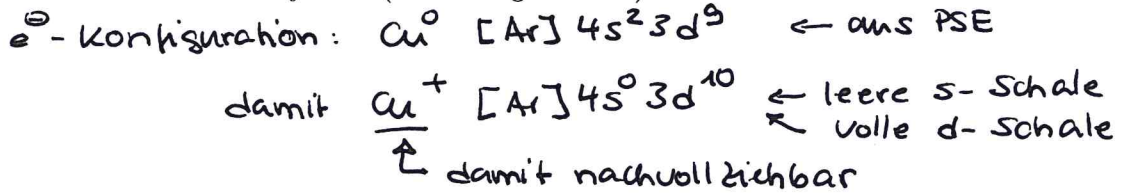 e⊖-Konfiguration: Cu⁰ [Ar] 4s² 3d⁹ ← aus PSE
damit Cu⁺ [Ar] 4s⁰ 3d¹⁰ ← leere s-Schale
↖ volle d-Schale
↑ damit nachvollziehbar